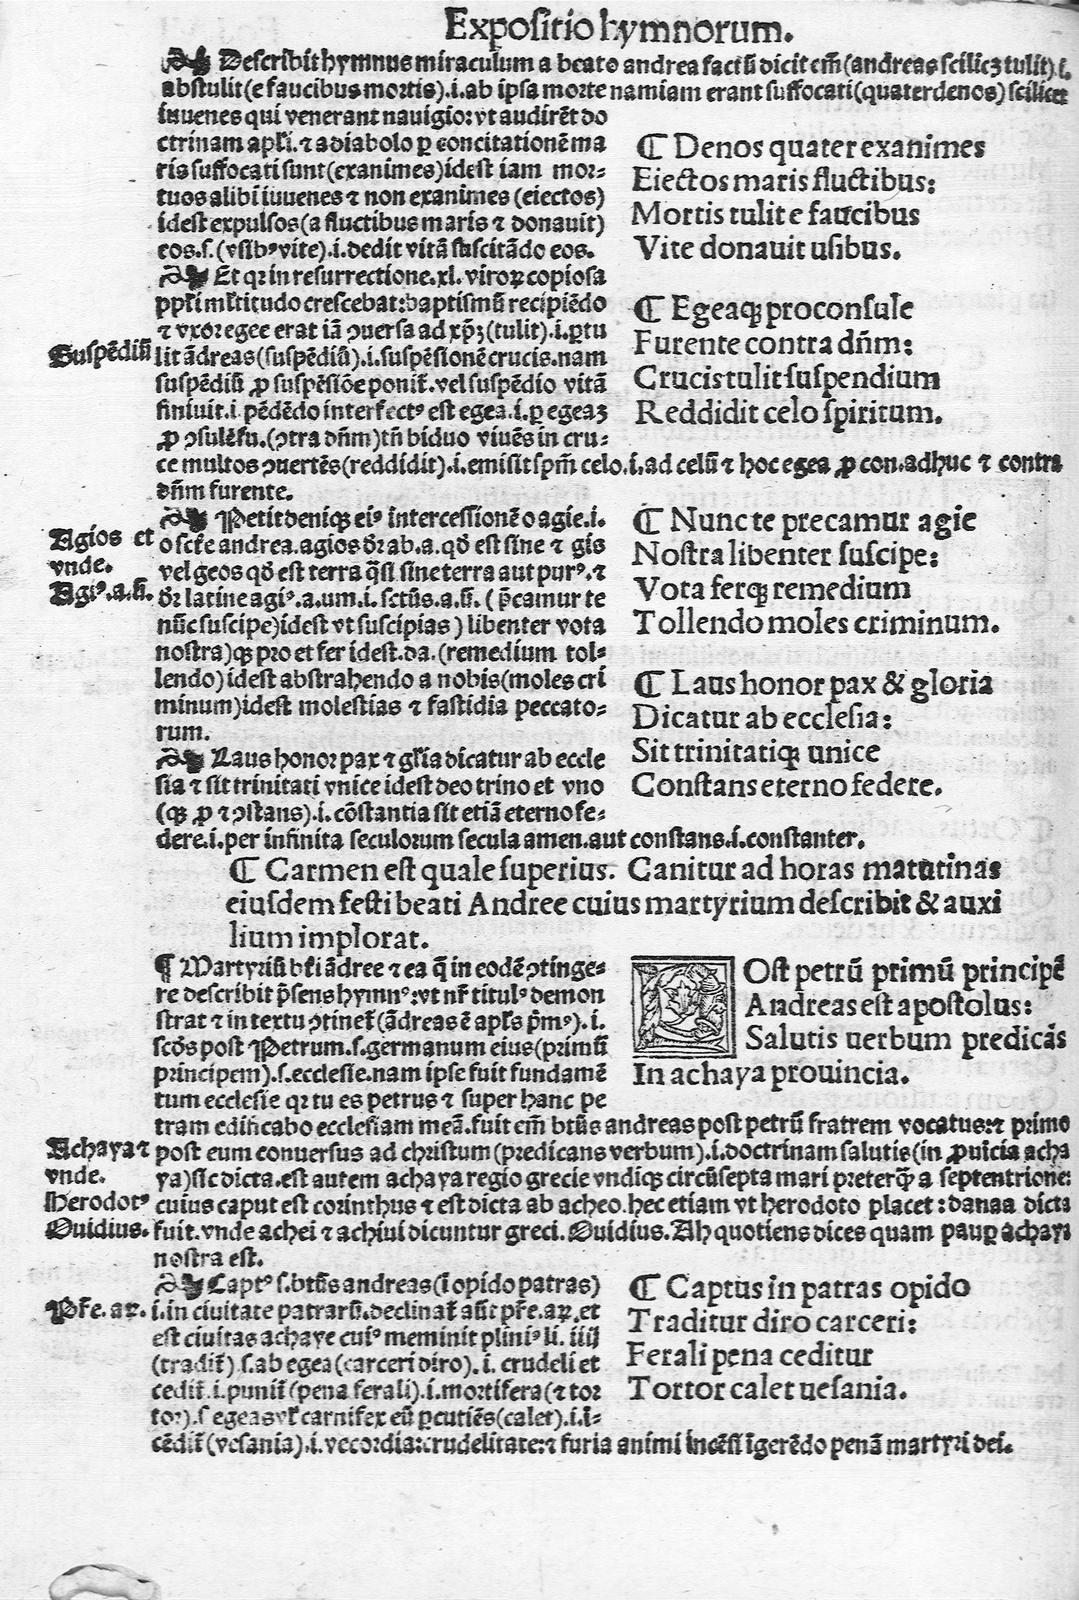 Expositio hymnorum.
Describit hymnus miraculum a beato andrea factū dicit em̄(andreas scilicꝫ tulit).i.
abstulit(e faucibus mortis).i.ab ipsa morte nam iam erant suffocati(quaterdenos)scilicet
iuuenes qui venerant nauigio:vt audirēt do
ctrinam apl̄i.⁊ a diabolo ꝑ concitationē ma
ris suffocati sunt(exanimes)idest iam mor⸗
tuos alibi iuuenes ⁊ non exanimes (eiectos)
idest expulsos(a fluctibus maris ⁊ donauit)
eos.s.(vsibꝰ vite).i.dedit vitā suscitādo eos.
¶ Denos quater exanimes
Eiectos maris fluctibus:
Mortis tulit e faucibus
Vite donauit usibus.
Et qꝛ in resurrectione.xl. viroꝝ copiosa
pp̄l̄i ml̄titudo crescebat:baptismū recipiēdo
⁊ vxor egee erat iā ↄuersa ad xp̄ꝫ(tulit).i.ꝑtu
Suspēdiū
lit ādreas(suspēdiū).i.suspēsionē crucis.nam
suspēdiū ꝓ suspēsiōe ponit̄.vel suspēdio vitā
finiuit.i.pēdēdo interfectꝰ est egea.i.ꝑ egeaꝫ
ꝓ ↄsulē fu.(ↄtra dn̄m)tn̄ biduo viuēs in cru⸗
ce multos ↄuertēs(reddidit).i.emisit sp̄m celo.i.ad celū ⁊ hoc egea ꝓ con.adhuc ⁊ contra
dn̄m furente.
¶ Egeaqꝫ proconsule
Furente contra dn̄m:
Crucis tulit suspendium
Reddidit celo spiritum.
Petit deniqꝫ eiꝰ intercessionē o agie.i.
Agios et
vnde.
Agiꝰ.a.ū.
o scte andrea.agios dr̄ ab.a.qd̄ est sine ⁊ gis
vel geos qd̄ est terra q̄si sine terra aut purꝰ.⁊
dr̄ latine agiꝰ.a.um.i.sctūs.a.ū.(p̄camur te
nūc suscipe)idest vt suscipias)libenter vota
nostra)qꝫ pro et fer idest.da.(remedium tol⸗
lendo)idest abstrahendo a nobis(moles cri
minum)idest molestias ⁊ fastidia peccato⸗
rum.
¶ Nunc te precamur agie
Nostra libenter suscipe:
Vota ferqꝫ remedium
Tollendo moles criminum.
Laus honor pax ⁊ gl̄ia dicatur ab eccle
sia ⁊ sit trinitati vnice idest deo trino et vno
(qꝫ ꝓ ⁊ ↄstans).i.cōstantia sit etiā eterno fe⸗
dere.i.per infinita seculorum secula amen.aut constans.i.constanter.
¶ Laus honor pax & gloria
Dicatur ab ecclesia:
Sit trinitatiqꝫ unice
Constans eterno federe.
¶ Carmen est quale superius. Canitur ad horas matutinas
eiusdem festi beati Andree cuius martyrium describit & auxi
lium implorat.
¶ Martyriū bt̄i ādree ⁊ ea q̄ in eodē ↄtinge⸗
re describit p̄sens hymnꝰ:vt nr̄ titulꝰ demon
strat ⁊ in textu ↄtinet̄(ādreas ē apl̄s p̄mꝰ).i.
scd̄s post Petrum.s.germanum eius(primū
principem).s.ecclesie.nam ipse fuit fundamē
tum ecclesie qꝛ tu es petrus ⁊ super hanc pe
tram edificabo ecclesiam meā.fuit em̄ btūs andreas post petrū fratrem vocatus:⁊ primo
Achaya ⁊
vnde.
Herodotꝰ
Ouidius.
post eum conuersus ad christum(predicans verbum).i.doctrinam salutis(in ꝓuicia acha
ya)sic dicta.est autem achaya regio grecie vndiqꝫ circūsepta mari preterq̄ a septentrione:
cuius caput est corinthus ⁊ est dicta ab acheo.hec etiam vt herodoto placet:danaa dicta
fuit.vnde achei ⁊ achiui dicuntur greci.Ouidius.Ah quotiens dices quam pauꝑ achaya
nostra est.
Post petrū primū principē
Andreas est apostolus:
Salutis uerbum predicās
In achaya prouincia.
Captꝰ s.btūs andreas(ī opido patras)
Pr̄e. aꝝ.
i.in ciuitate patrarū.declinat̄ aūt pr̄e.aꝝ.et
est ciuitas achaye cuiꝰ meminit pliniꝰ li. iiij
(tradit̄) s.ab egea(carceri diro).i. crudeli et
cedit̄.i.punit̄(pena ferali).i.mortifera(⁊ tor
tor).s egeas vl̄ carnifex eū ꝑcutiēs(calet).i.ī⸗
cēdit̄(vesania).i.vecordia:crudelitate:⁊ furia animi incēsi īgerēdo penā martyri dei.
¶ Captus in patras opido
Traditur diro carceri:
Ferali pena ceditur
Tortor calet uesania.